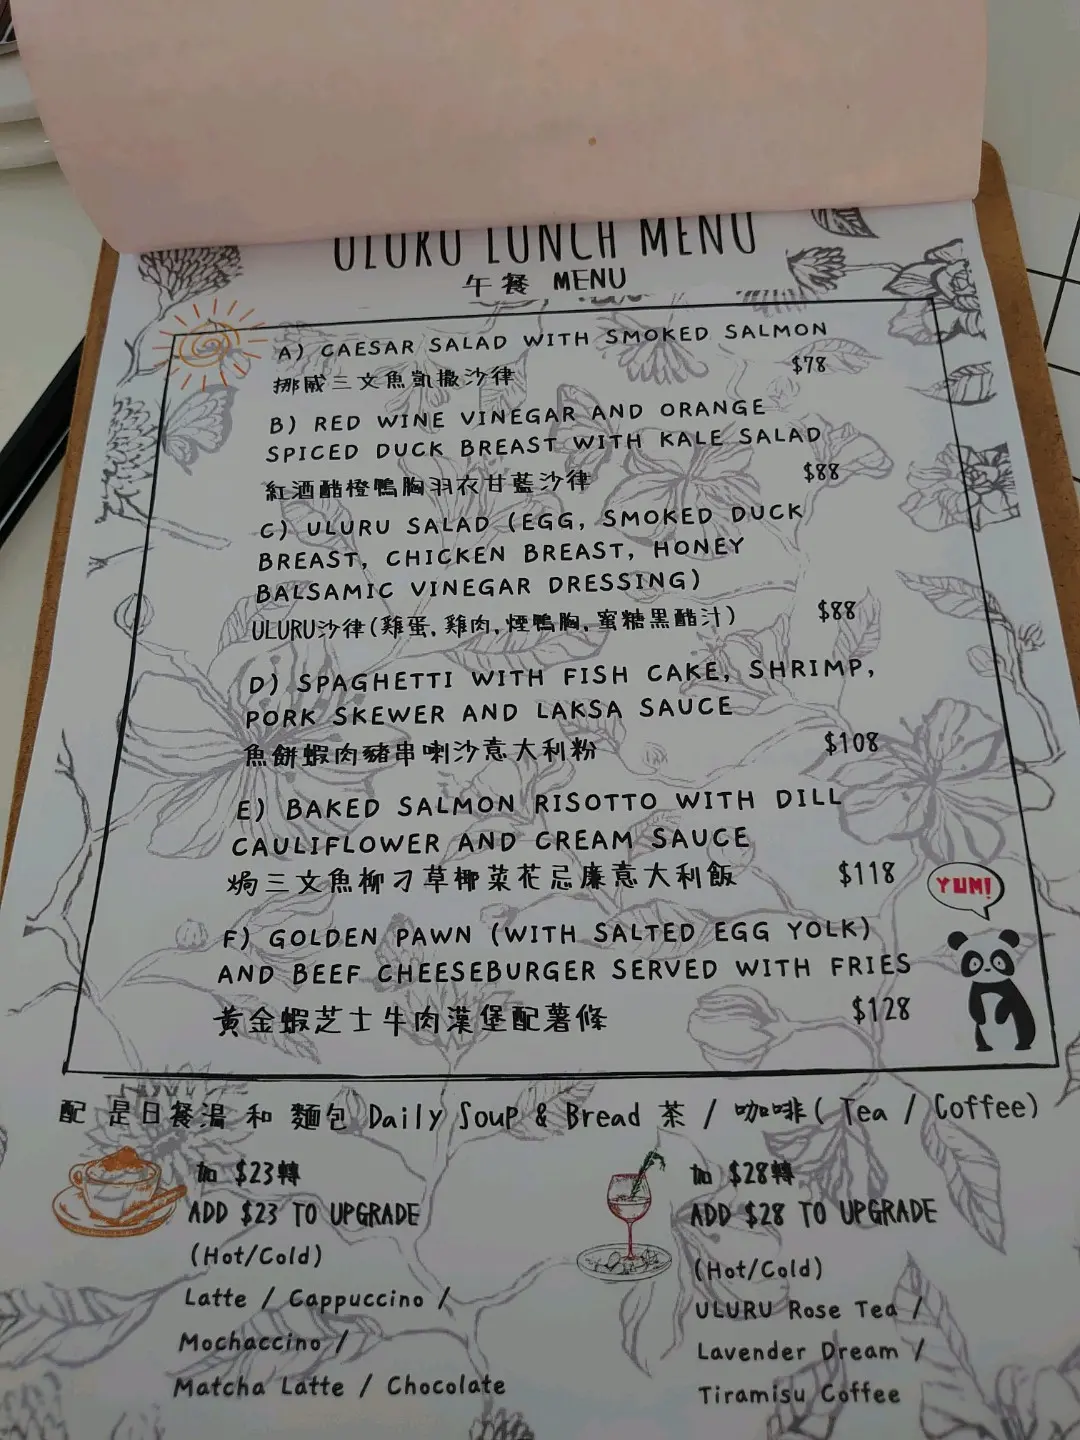 ULURU LUNCH MENU
午餐 MENU
A) CAESAR SALAD WITH SMOKED SALMON
$78
挪威三文魚凱撒沙律
B) RED WINE VINEGAR AND ORANGE
SPICED DUCK BREAST WITH KALE SALAD
$88
紅酒醋橙鴨胸羽衣甘藍沙律
C) ULURU SALAD (EGG, SMOKED DUCK
BREAST, CHICKEN BREAST, HONEY
BALSAMIC VINEGAR DRESSING)
$88
ULURU沙律(雞蛋,雞肉,煙鴨胸,蜜糖黑醋汁)
D) SPAGHETTI WITH FISH CAKE, SHRIMP,
PORK SKEWER AND LAKSA SAUCE
魚餅蝦肉豬串喇沙意大利粉 $108
E) BAKED SALMON RISOTTO WITH DILL
CAULIFLOWER AND CREAM SAUCE
焗三文魚柳刁草椰菜花忌廉意大利飯 $118
YUM!
F) GOLDEN PAWN (WITH SALTED EGG YOLK)
AND BEEF CHEESEBURGER SERVED WITH FRIES
黃金蝦芝士牛肉漢堡配薯條 $128
配 是日餐湯 和 麵包 Daily Soup & Bread 茶 / 咖啡( Tea / Coffee)
加 $23轉
ADD $23 TO UPGRADE
(Hot/Cold)
Latte / Cappuccino /
Mochaccino /
Matcha Latte / Chocolate
加 $28轉
ADD $28 TO UPGRADE
(Hot/Cold)
ULURU Rose Tea /
Lavender Dream /
Tiramisu Coffee